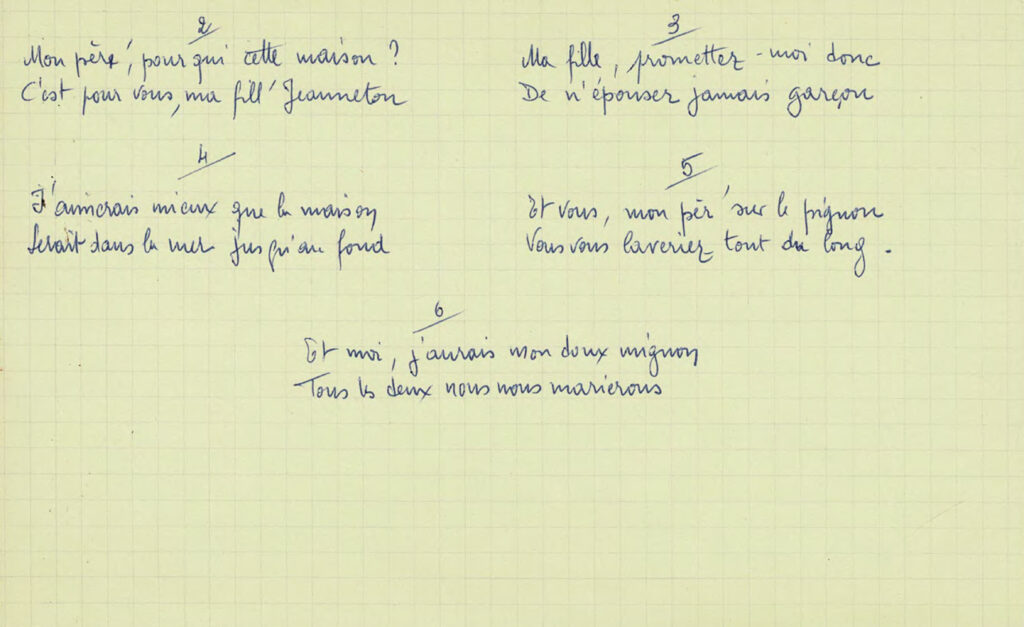 2
Mon père, pour qui cette maison ?
C'est pour vous, ma fill' Jeanneton
3
Ma fille, promettez-moi donc
De n'épouser jamais garçon
4
J'aimerais mieux que la maison
Serait dans la mer jusqu'au fond
5
Et vous, mon pèr' sur le pignon
Vous vous laveriez tout du long.
6
Et moi, j'aurais mon doux mignon
Tous les deux nous nous marierons